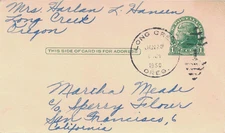 Mrs Harlan L Hansen
Long Creek
Oregon
THIS SIDE OF CARD IS FOR ADDRESS
LONG CREEK
OREG.
Martha Meade
c/o Sperry Flour
San Francisco, 6
California